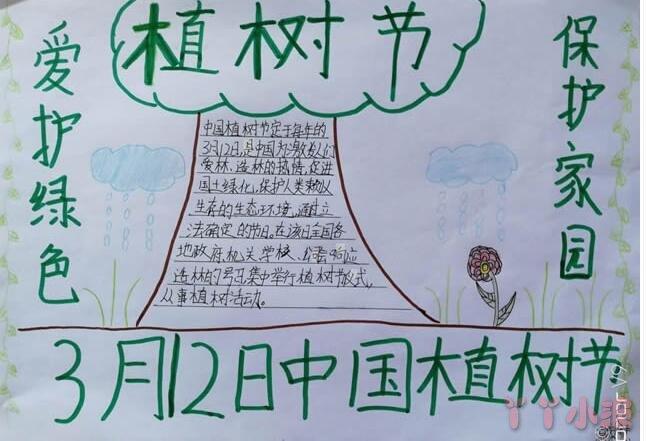 植树节
爱护绿色
保护家园
中国植树节定于每年的
3月12日,是中国为激发人们
爱林、造林的热情,促进
国土绿化,保护人类赖以
生存的生态环境,通过立
法确定的节日。在该日全国各
地政府、机关、学校、公
响应
造林的号召集中举行植树节仪式,
从事植树活动。
3月12日中国植树节
honor V9
丫丫小